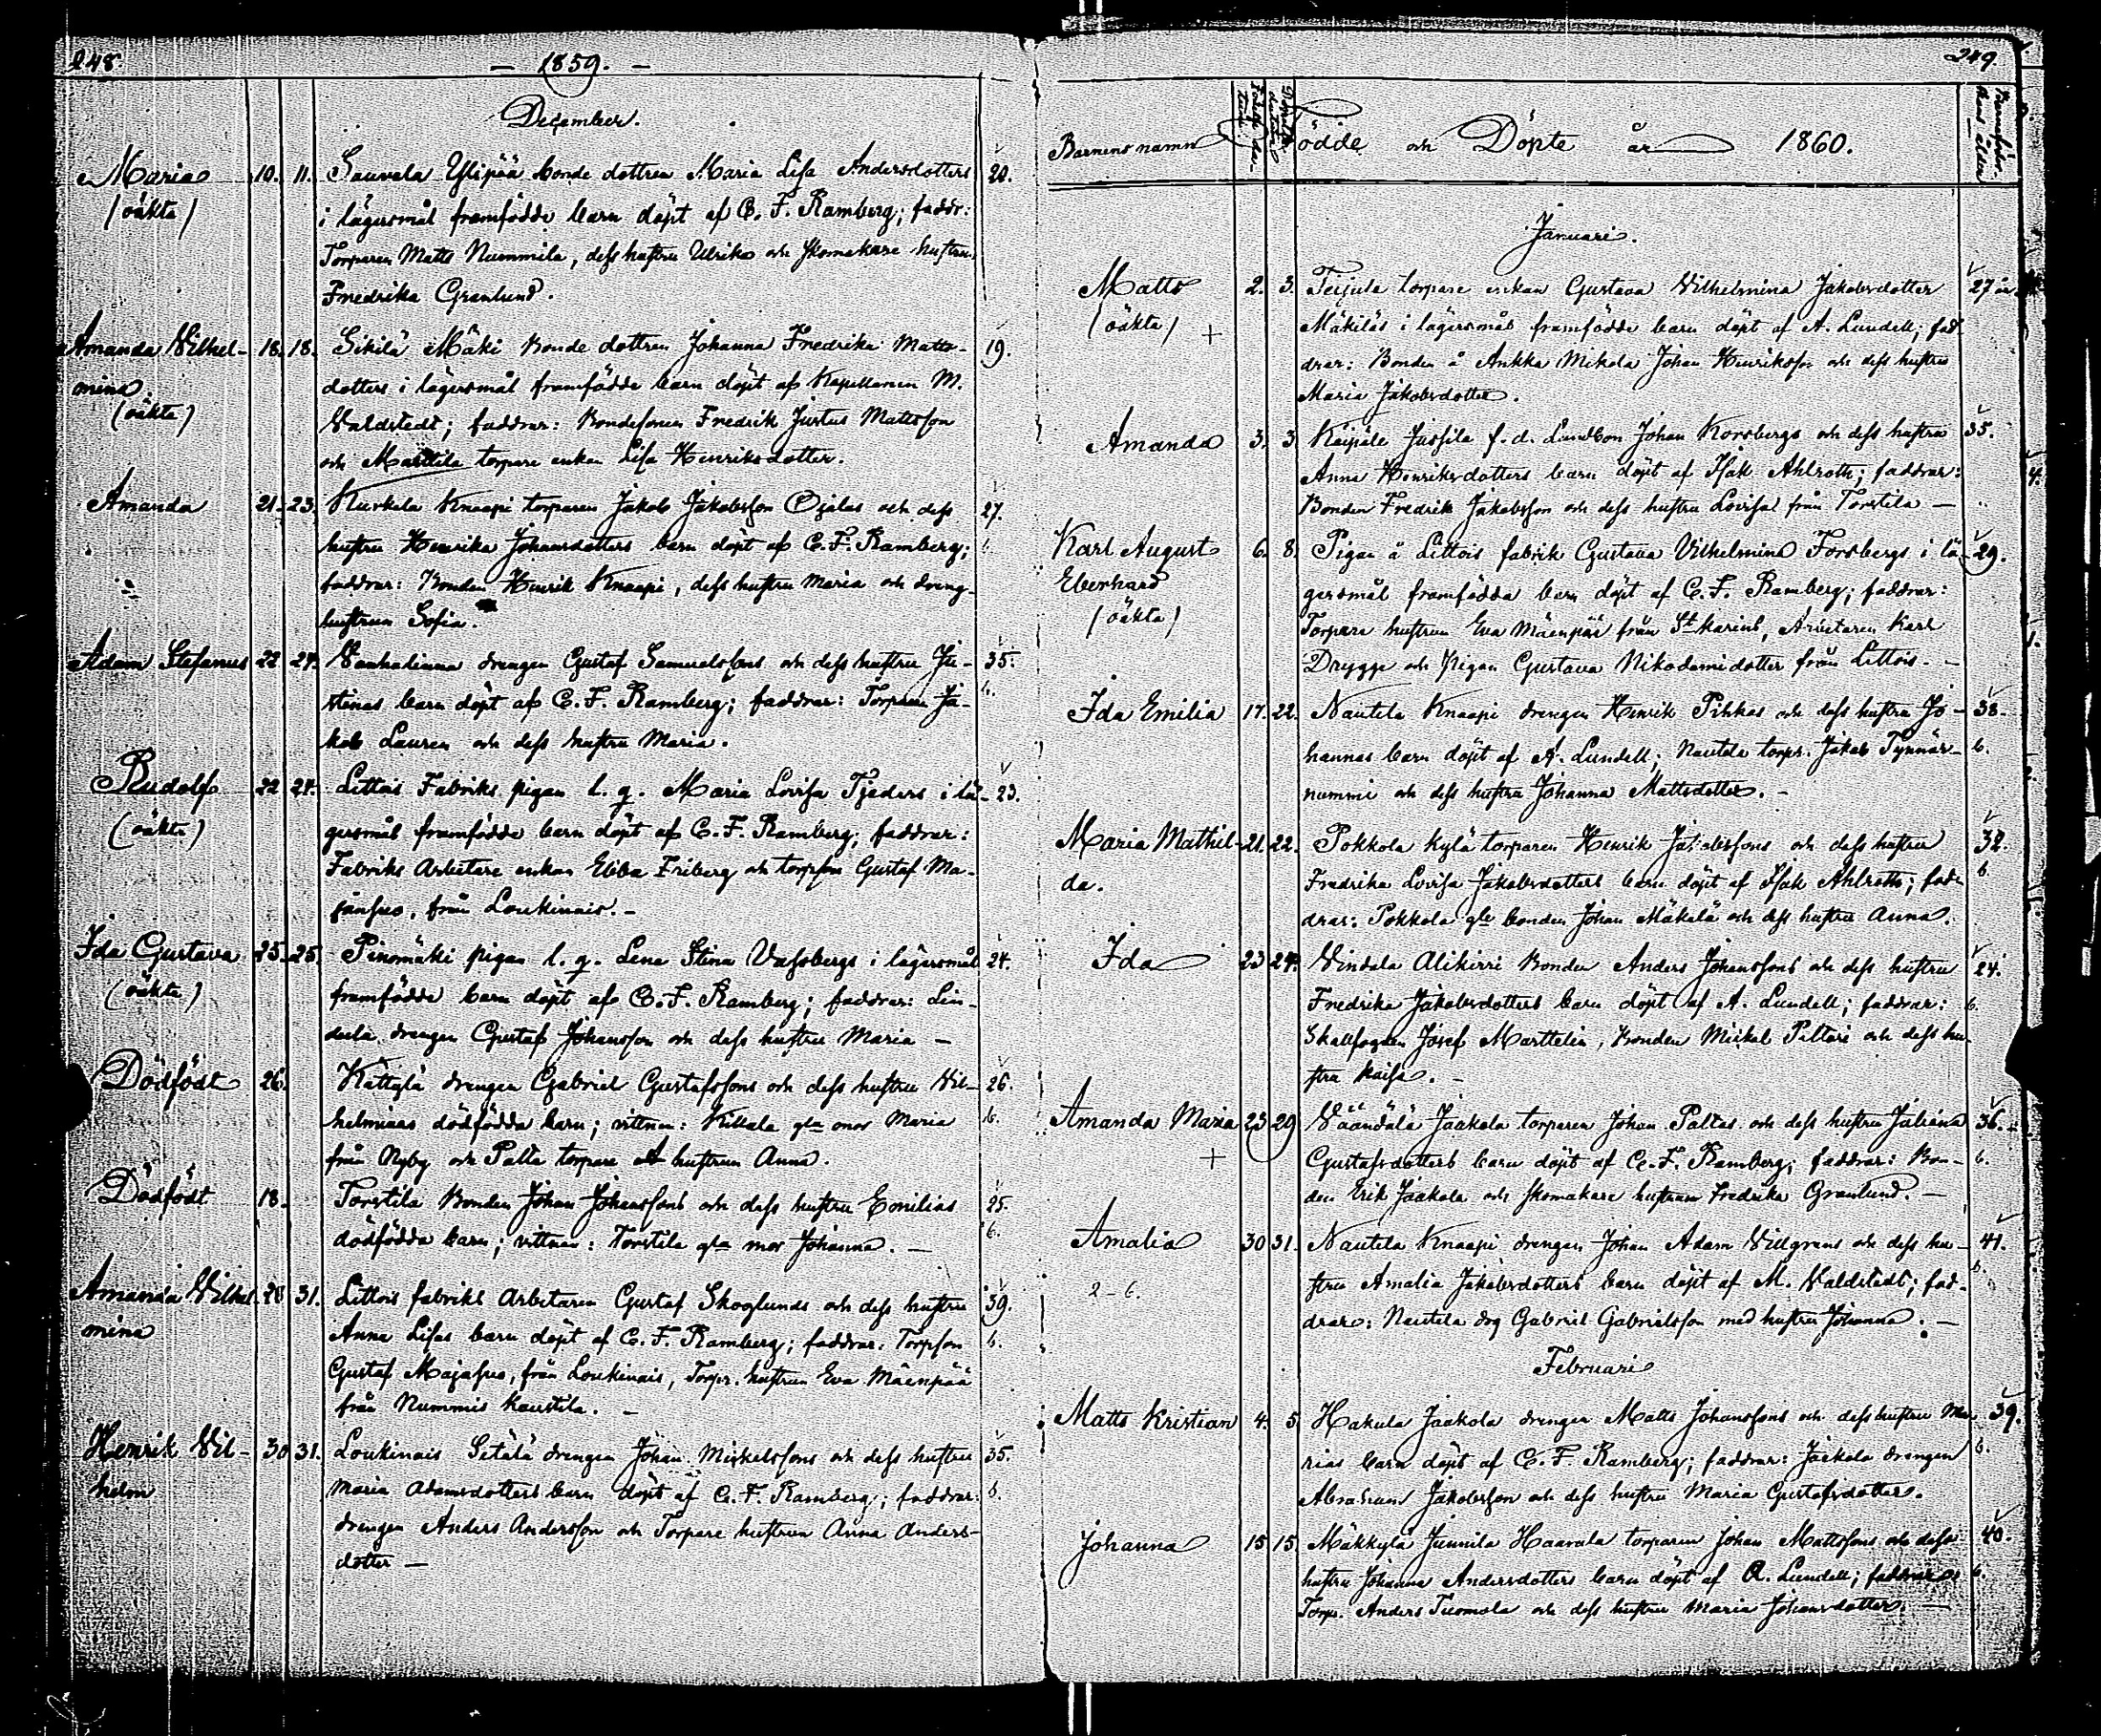 248.
— 1859. —
December.
Maria 10. 11. Sauvala Ylipää bonde dottren Maria Lisa Andersdotters 20.
(oäkta) i lägersmål framfödde barn döpt af C. F. Ramberg; faddr:
Torparen Matts Nummila, dess hustru Ulrika och Skomakare hustrun
Fredrika Granlund.
Amanda Vilhel- 18. 18. Sikilä Mäki Bonde dottren Johanna Fredrika Matts- 19.
mina dotters i lägersmål framfödde barn döpt af Kapellanen M.
(oäkta) Valdstedt; faddrar: Bondesonen Fredrik Justus Mattsson
och Marttila torpare enkan Lisa Henriksdotter.
Amanda 21. 23. Kurkela Knaapi torparen Jakob Jakobsson Ojalas och dess 27.
hustru Henrika Johansdotters barn döpt af C. F. Ramberg; b.
faddrar: Bonden Henrik Knaapi, dess hustru Maria och dreng-
hustrun Sofia.
Adam Stefanus 22 27. Vanhalinna drengen Gustaf Samuelssons och dess hustru Ju- 35.
stinas barn döpt af C. F. Ramberg; faddrar: Torparen Ja- b.
kob Lauren och dess hustru Maria.
Rudolf 22 27. Littois Fabriks pigan l. q. Maria Lovisa Tjeders i lä- 23.
(oäkta) gersmål framfödde barn döpt af C. F. Ramberg; faddrar:
Fabriks Arbetare enkan Ebba Friberg och torpson Gustaf Ma-
jansuo, från Loukinais. —
Ida Gustava 25. 25. Pinomäki pigan l. q. Lena Stina Vassbergs i lägersmål 24.
(oäkta) framfödde barn döpt af C. F. Ramberg; faddrar: Lin-
dula drengen Gustaf Johansson och dess hustru Maria —
Dödfödt 26. Kättylä drengen Gabriel Gustafssons och dess hustru Vil- 26.
helminas dödfödda barn; vittnen: Killala gla mor Maria b.
från Nyby och Palta torpare hustrun Anna.
Dödfödt 18. Torstila Bonden Johan Johanssons och dess hustru Emilias 25.
dödfödda barn; vittnen: Torstila gla mor Johanna. — b.
Amanda Vilhel- 28 31. Littois fabriks Arbetaren Gustaf Skoglunds och dess hustru 39.
mina Anna Lisas barn döpt af C. F. Ramberg; faddrar: Torpson b.
Gustaf Majasuo, från Loukinais, Torpr. hustrun Eva Mäenpää
från Nummis Kaustila. —
Henrik Vil- 30 31. Loukinais Sitälä drengen Johan Mickelssons och dess hustru 35.
helm Maria Adamsdotters barn döpt af C. F. Ramberg; faddrar: b.
drengen Anders Andersson och Torpare hustrun Anna Anders-
dotter —
249.
Barnens namn Födde och Döpte år 1860.
Januari.
Matts 2. 3. Teijula torpare enkan Gustava Vilhelmina Jakobsdotter 27 år.
(oäkta) + Mäkiläs i lägersmål framfödde barn döpt af A. Lundell; fad-
drar: Bonden å Ankka Mikola Johan Henriksson och dess hustru
Maria Jakobsdotter.
Amanda 3. 3 Kaipale Jussila f. d. Landbon Johan Korsbergs och dess hustru 35.
Anna Henriksdotters barn döpt af Isak Ahlroth; faddrar:
Bonden Fredrik Jakobsson och dess hustru Lovisa från Torstila —
Karl August 6. 8. Pigan å Littois fabrik Gustava Vilhelmina Forsbergs i lä- 29.
Eberhard gersmål framfödda barn döpt af C. F. Ramberg; faddrar:
(oäkta) Torpare hustrun Eva Mäenpää från St Karins, Arbetaren Karl
Drygge och Pigan Gustava Nikodemidotter från Littois. —
Ida Emilia 17. 22. Nautela Knaapi drengen Henrik Pihkas och dess hustru Jo- 38.
hannas barn döpt af A. Lundell; Nautela torpr. Jakob Tynnär- b.
nummi och dess hustru Johanna Mattsdotter. —
Maria Mathil- 21. 22. Pokkola Kylä torparen Henrik Jakobssons och dess hustru 32.
da. Fredrika Lovisa Jakobsdotters barn döpt af Isak Ahlroth; fad- b.
drar: Pokkola gle bonden Johan Mäkelä och dess hustru Anna.
Ida 23 24. Vindala Alikirri Bonden Anders Johanssons och dess hustru 24.
Fredrika Jakobsdotters barn döpt af A. Lundell; faddrar: b.
Skallfogden Josef Marttelin, Bonden Mickel Piltari och dess hu-
stru Kaisa. —
Amanda Maria 23 29 Väändälä Jaakola torparen Johan Paltas och dess hustru Juliana 36.
+ Gustafsdotters barn döpt af C. F. Ramberg; faddrar: Bon- b.
den Erik Jaakola och Skomakare hustrun Fredrika Granlund. —
Amalia 30 31. Nautela Knaapi drengen Johan Adam Villgrens och dess hu- 41.
2-6. stru Amalia Jakobsdotters barn döpt af M. Valdstedt; fad- b.
drar: Nautela drg Gabriel Gabrielsson med hustru Johanna. —
Februari
Matts Kristian 4. 5. Hakula Jaakola drengen Matts Johanssons och dess hustru Ma- 39.
rias barn döpt af C. F. Ramberg; faddrar: Jaakola drengen b.
Abraham Jakobsson och dess hustru Maria Gustafsdotter.
Johanna 15 15. Mäkkylä Junnila Haavala torparen Johan Mattssons och dess 40.
hustru Johanna Andersdotters barn döpt af A. Lundell; faddrar: b.
Torp. Anders Tuomola och dess hustru Maria Johansdotter. —